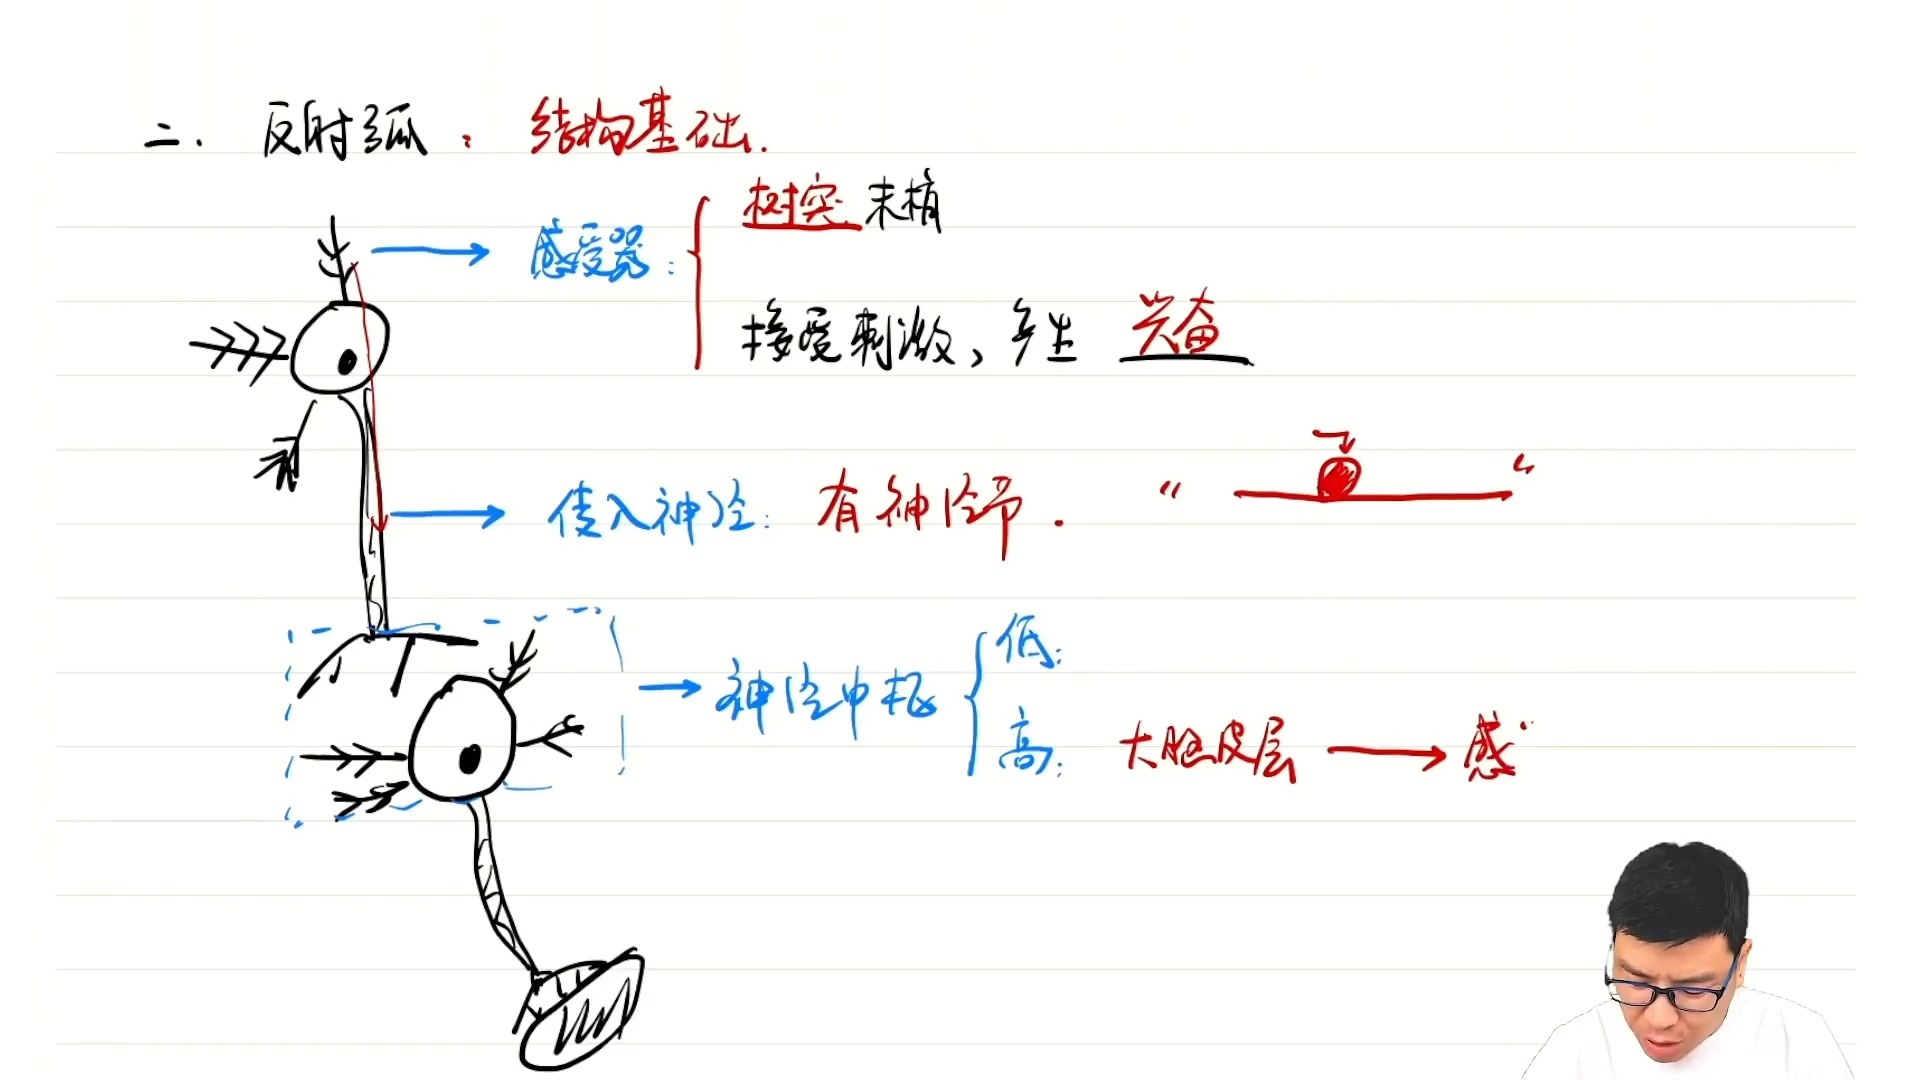 二. 反射弧: 结构基础.
感受器:
树突末梢
接受刺激, 产生 兴奋
传入神经: 有神经节.
神经中枢
低:
高: 大脑皮层 → 感